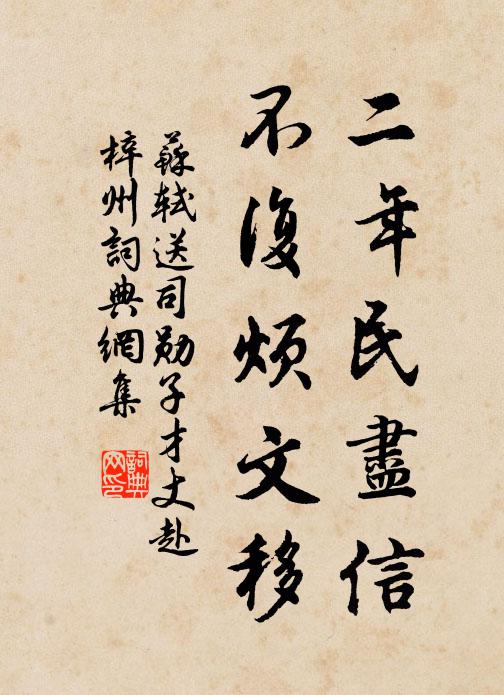 二年民盡信
不復煩文移
蘇軾送司勛子才丈赴
梓州詞典網集
詞典網印